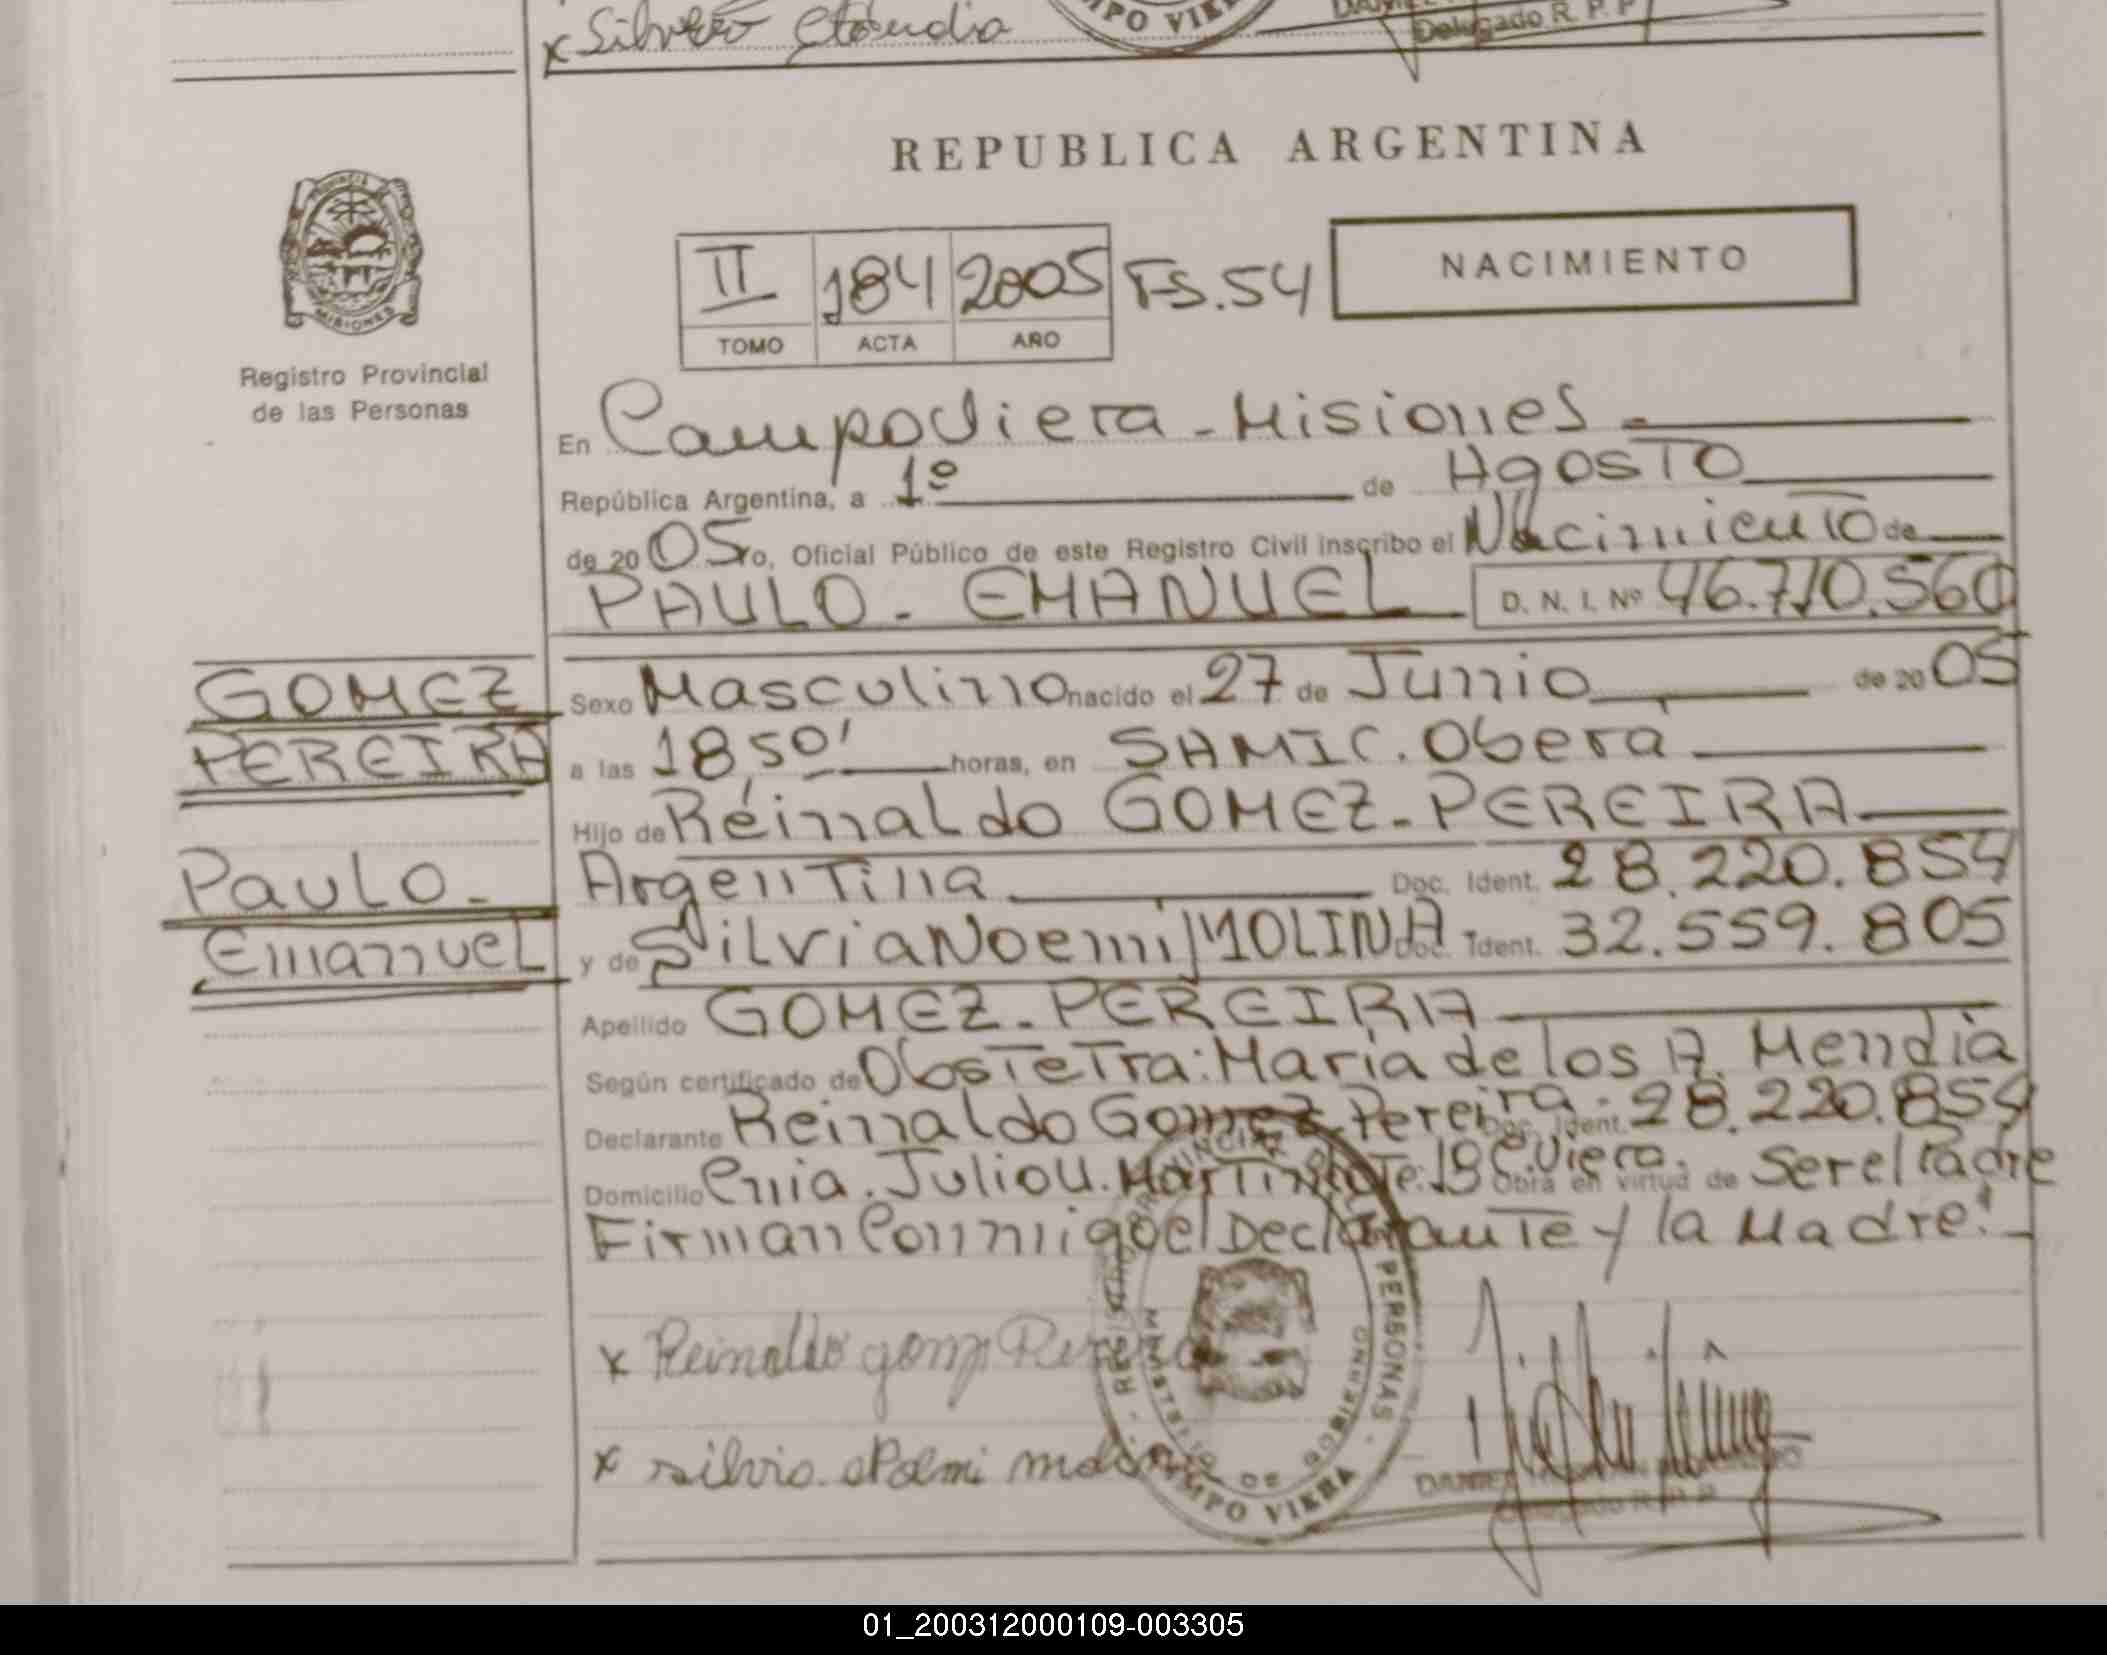 x Silvero Claudia
MPO VIER
Delegado R. P. P
REPUBLICA ARGENTINA
PROVINCIA
MISIONES
Registro Provincial
de las Personas
II 184 2005 FS.54
TOMO ACTA AÑO
NACIMIENTO
En Campo Viera - Misiones
República Argentina, a 1º de Agosto
de 2005 Yo, Oficial Público de este Registro Civil inscribo el Nacimiento de
PAULO - EMANUEL D. N. I. Nº 46.710.560
GOMEZ
PEREIRA
Paulo -
Emanuel
Sexo Masculino nacido el 27 de Junio de 2005
a las 18,50' horas, en SAMIC. Oberá
Hijo de Reinaldo GOMEZ - PEREIRA
Argentina Doc. Ident. 28.220.854
y de Silvia Noemi MOLINA Doc. Ident. 32.559.805
Apellido GOMEZ - PEREIRA
Según certificado de Obstetra: Maria de los A. Mendia
Declarante Reinaldo Gomez Pereira. Doc. Ident. 28.220.854
Domicilio Cnia. Julio U. Martin Lote: 19 C. Viera. Obra en virtud de Ser el Padre
Firman Conmigo el Declarante y la Madre!
x Reinaldo gomz Perera
x silvia Noemi molina
REGISTRO PROVINCIAL DE LAS PERSONAS
MINISTERIO DE GOBIERNO
CAMPO VIERA
DANIEL
Delegado R. P. P
01_200312000109-003305